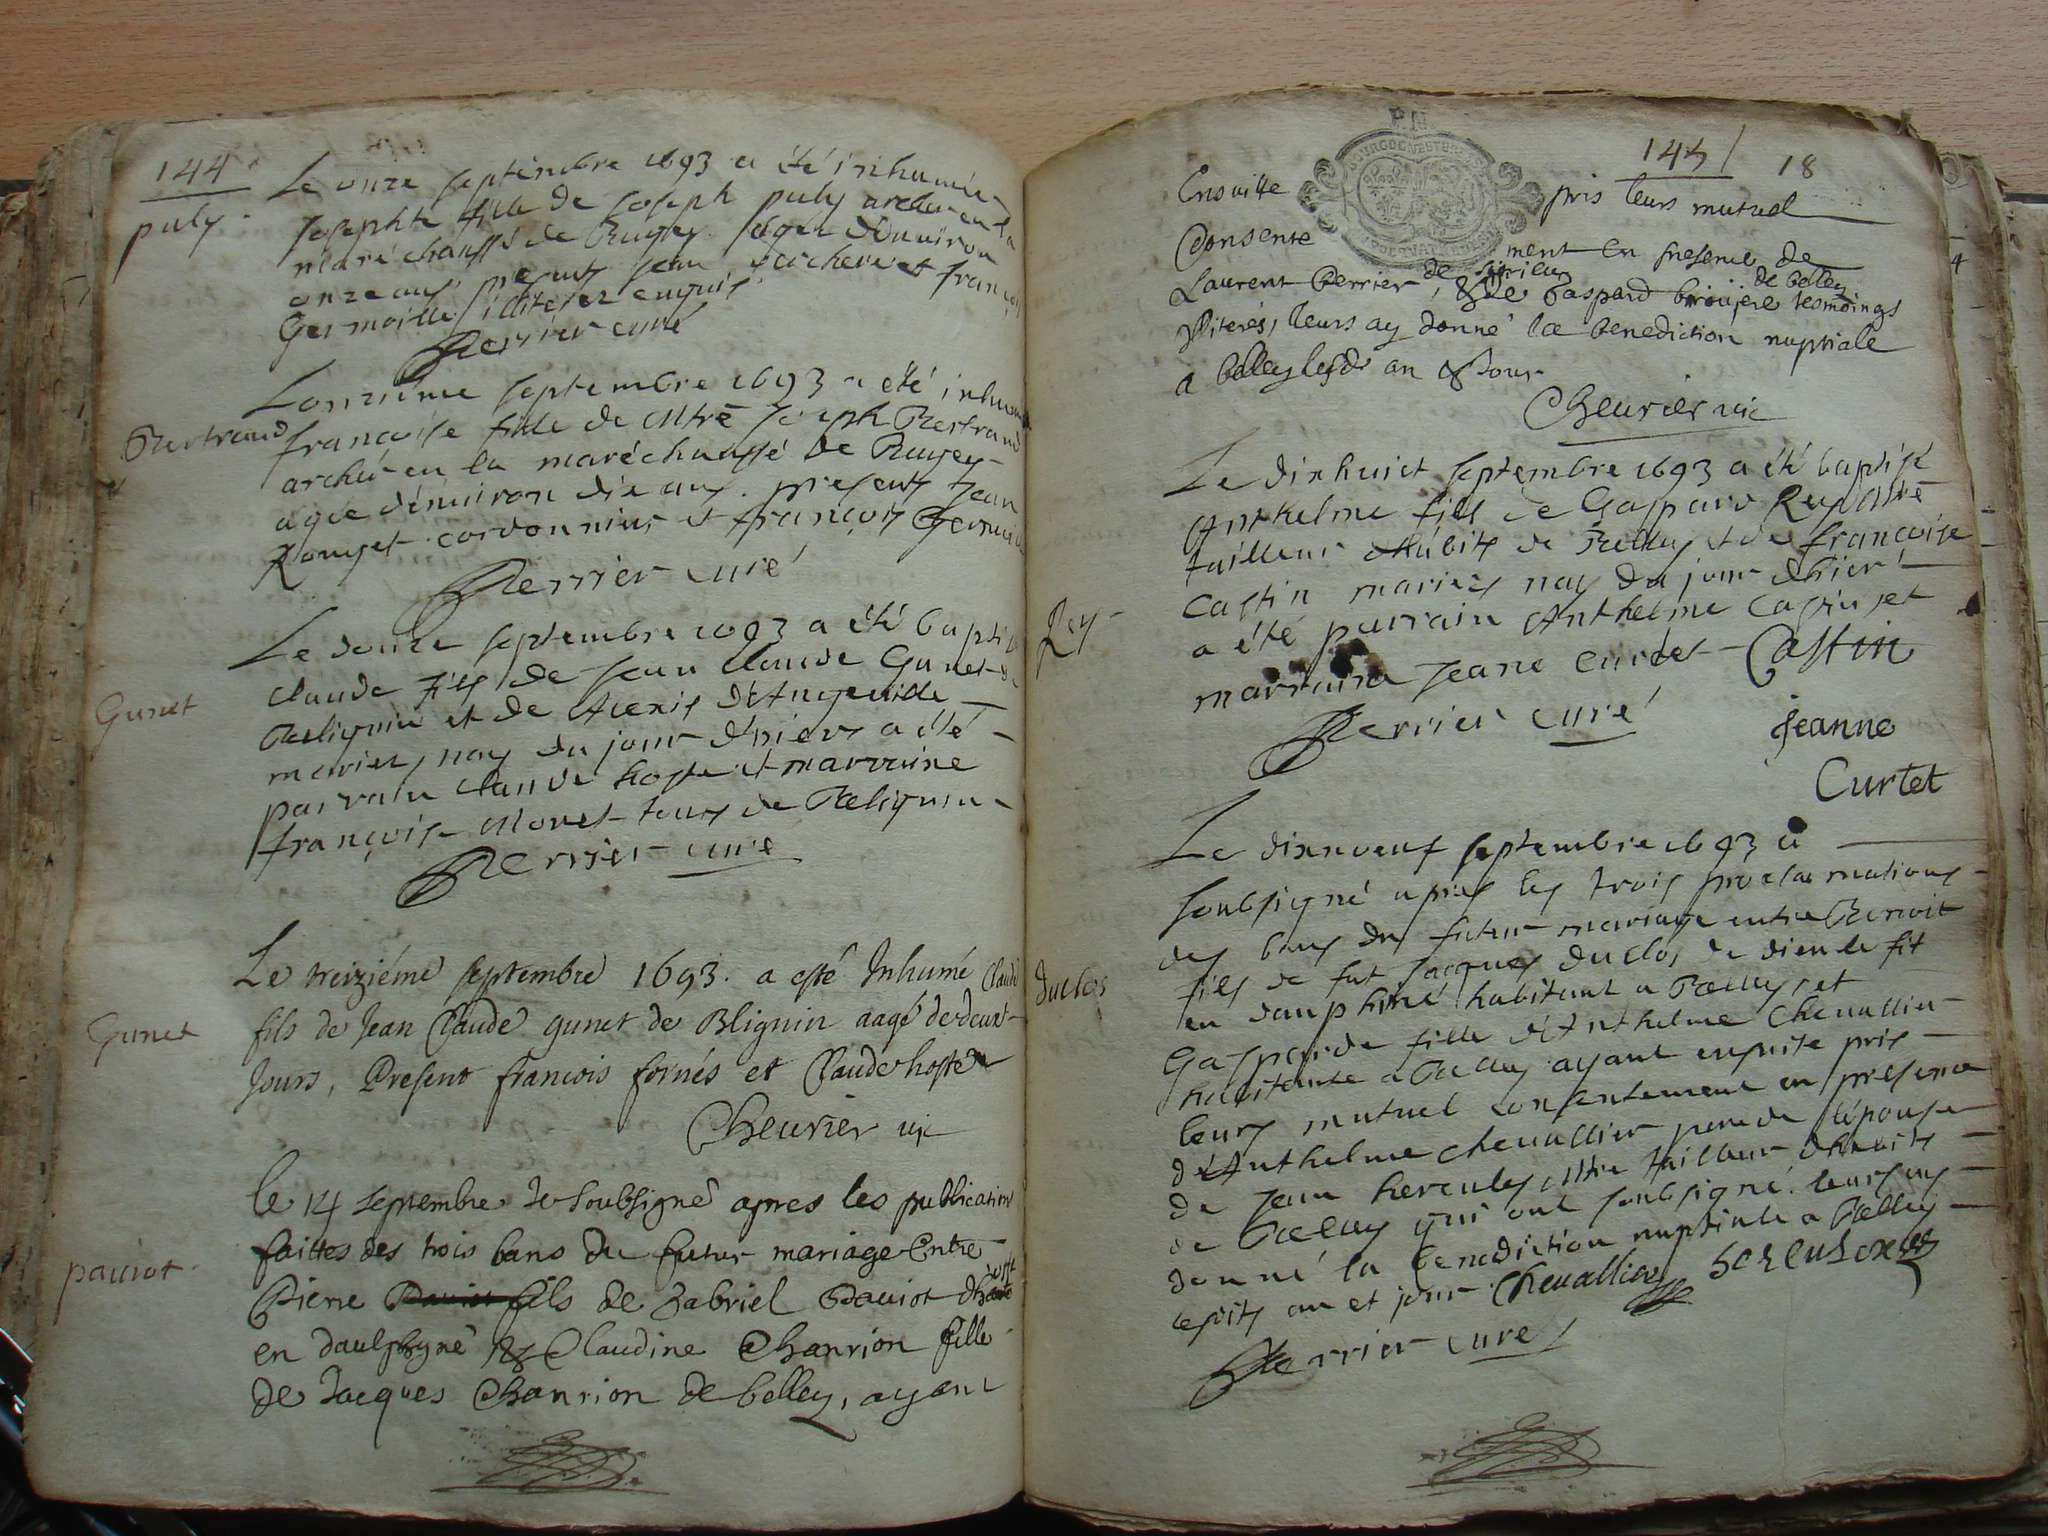 144
puly
Le onze septembre 1693 a été inhumée
Josephte fille de Joseph puly archer en la
maréchaussé de Bugey âgée d'environ
onze ans presents Jean et françois
Germoille illiteres enquis
Perrier curé
Bertrand
L'onzieme septembre 1693 a été inhumé
françoise fille de Mtre Joseph Bertrand
archer en la maréchaussé de Bugey
agée d'environ dix ans. presents Jean
Rouget cordonnier et françois
Perrier curé
Gunet
Le douze septembre 1693 a été baptisé
Claude fils de Jean Claude Gunet de
Beligniu et de d'Angeville
mariez, nay du jour d'hier a été
parrain Claude hoste et marraine
françoise Moret tous de Beligniu
Perrier curé
Gunet
Le treiziéme septembre 1693. a esté Inhumé Claude
fils de Jean Claude gunet de Blignin aagé de deux
Jours, Present francois fornés et Claude hoste
Cheurier vic
pauiot
le 14 septembre Je soubsigné apres les publications
faittes des trois bans du futur mariage Entre
Pierre fils de Gabriel Pauiot
en daulphyné & Claudine Chanrion fille
de Jacques Chanrion de belley, ayant
145 18
Ensuitte pris leurs mutuel
Consente ment En presence de
Laurent Perrier, de & de Gaspard broujere de belley tesmoings
Illiterés, leurs ay donné la benediction nuptiale
a belley lesds an & Jour
Cheurier vic
Rey
Le dixhuict septembre 1693 a été baptisé
Anthelme fils de Gaspard Rey Mtre
tailleur d'habits de Belley et de françoise
Castin mariez nay du jour d'hier
a été parrain Anthelme Castin et
marraine Jeane Curtet Castin
Perrier curé
Jeanne
Curtet
duclos
Le dixneuf septembre 1693 Je
soubsigné apres les trois proclamations
des bans du futur mariage entre Benoit
fils de fut Jacques duclos de dieu le fit
en dauphiné habitant a Belley et
Gasparde fille d'Anthelme Chevallier
habitante a Belley ayant ensuite pris
leurs mutuel consentement en presence
d'Anthelme Chevallier pere de l'épouse
de Jean hercules Mtre tailleur d'habits
de Belley qui ont soubsigné. leurs ay
donné la benediction nuptiale a Belley
lesdits an et jour Chevallier
Perrier curé